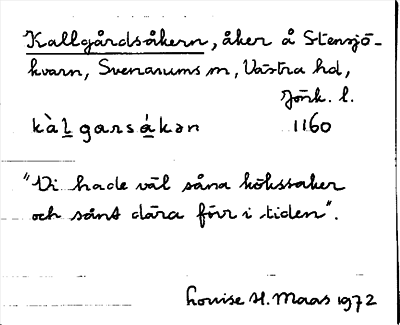 Kallgårdsåkern, åker å Stensjö-
kvarn, Svenarums sn, Västra hd,
Jönk. l.
kàl̲ garsá̲kən 1160
"Vi hade väl såna kökssaker
och sånt dära förr i tiden".
Louise H. Maas 1972